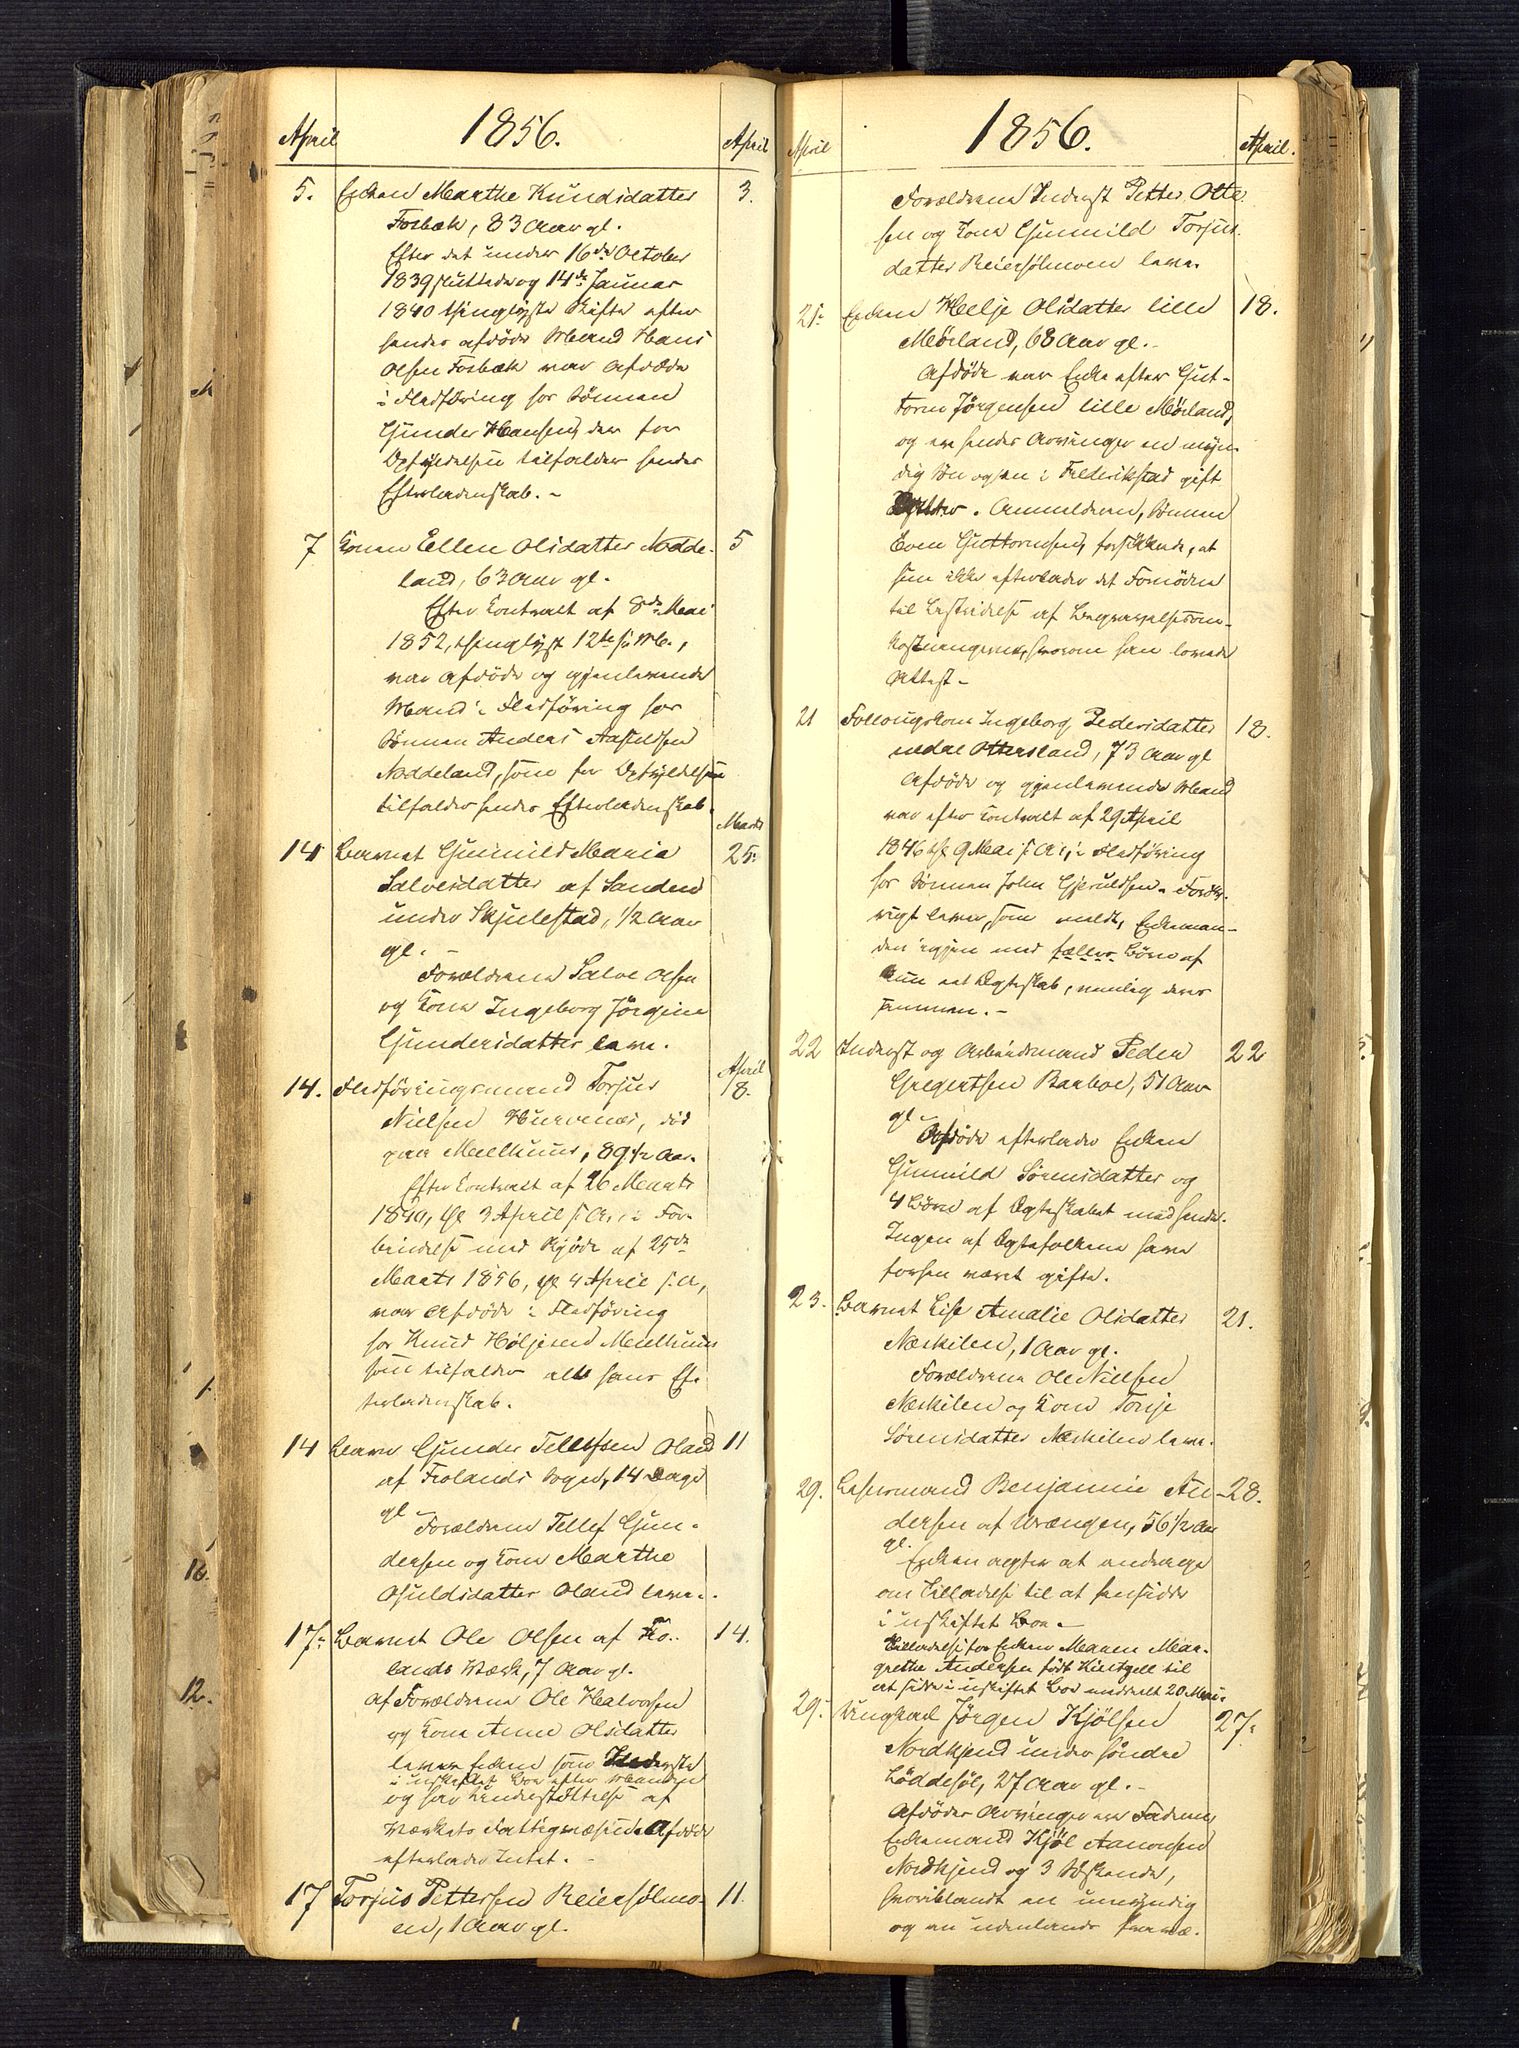 April 1856. April
5. Enken Marthe Knudsdatter 3.
Fosbæk, 83 Aar gl.
Efter det under 16de October
1839 sluttede og 14de Januar
1840 thinglyste Skifte efter
hendes afdøde Mand Hans
Olsen Fosbæk var Afdøde
i Fledføring hos Sønnen
Gunder Hansen, der for
Opfyldelsen tilfalder hendes
Efterladenskab. -
7 Konen Ellen Olsdatter Nødde- 5
land, 63 Aar gl.
Efter Kontract af 8de Mai
1852, thinglyst 12te s. M.,
var Afdøde og gjenlevende
Mand i Fledføring hos
Sønnen Anders Aslaksen
Nøddeland, som for Opfyldelsen
tilfalder hendes Efterladenskab.
Marts
14 Barnet Gunnild Maria 25.
Salvesdatter af Sanden
under Skjulestad, 1/2 Aar
gl. -
Forældrene Salve Olsen
og Kone Ingeborg Jørgine
Gundersdatter leve.
April
14. Fledføringsmand Torjus 8.
Nielsen Hurvenæs, død
paa Mælhuus, 89 1/2 Aar.
Efter Kontract af 26 Marts
1840, thl 3 April s. A., i For-
bindelse med Skjøde af 25de
Marts 1856, thl 4 April s. A,
var Afdøde i Fledføring
hos Knud Høljesen Mælhuus
som tilfalder alt hans Ef-
terladenskab.
14 Barn Gunder Tellefsen Oland 11
af Frolands Sogn, 14 Dage
gl
Forældrene Tellef Gun-
dersen og Kone Marthe
Osuldsdatter Oland leve.
17. Barnet Ole Olsen af Fro- 14.
lands Værk, 7 Aar gl.
af Forældrene Ole Halvorsen
og Kone Anne Olsdatter
lever Enken som Inderste
i uskiftet Boe efter Manden
og har Understøttelse af
Værkets Fattigvæsen. Afdøde
efterlader Intet. -
17 Torjus Pettersen Reiersølmo- 11.
en, 1 Aar gl.
April 1856. April.
Forældrene Inderst Petter Olte
sen og Kone Gunnild Torjus-
datter Reiersølmoen leve.
21. Enken Helje Olsdatter lille 18.
Mørland, 68 Aar gl. -
Afdøde var Enke efter Gut-
torm Jørgensen lille Mørland,
og ere hendes Arvinger en myn-
dig Søn og en i Frederikstad gift
Datter. Anmelderen, Sønnen
Even Guttormsen, forsikkrede, at
hun ikke efterlader det Fornødne
til Bestridelse af Begravelsesom-
kostningerne, hvorom han lovede
Attest -
21 Follougskone Ingeborg Pedersdatter 18.
nedre Ottersland, 73 Aar gl
Afdøde og gjenlevende Mand
var efter Kontract af 29 April
1846 thl 9 Mai s. A., i Fledføring
hos Sønnen John Gjeruldsen. Forøv-
rigt lever, som meldt, Enkeman-
den igjen med fælles Børn af
kun eet Ægteskab, nemlig deres
sammen. -
22 Inderst og Arbeidsmand Peder 22
Gregertsen Barboe, 51 Aar
gl
Afdøde efterlader Enken
Gunnild Sørensdatter og
4 Børn af Ægteskabet med hende.
Ingen af Ægtefolkene have
forhen været gifte.
23. Barnet Lise Amalie Olsdatter 21.
Næskilen, 1 Aar gl.
Forældrene Ole Nielsen
Næskilen og Kone Tonje
Sørensdatter Næskilen leve.
29. Løsermand Benjamin An- 28.
dersen af Vrængen, 56 1/2 Aar
gl.
Enken agter at andrage
om Tilladelse til at hensidde
i uskiftet Boe. -
Tilladelse for Enken Maren Mar-
grethe Andersen født Kintzell til
at sidde i uskiftet Boe meddeelt 20 Mai.
29. Ungkarl Jørgen Kjølsen 27.
Nordkjend under søndre
Løddesøl, 27 Aar gl. -
Afdødes Arvinger ere Faderen,
Enkemand Kjøl Aanonsen
Nordkjend og 3 Søskende,
hvoriblandt en umyndig
og en udenlands